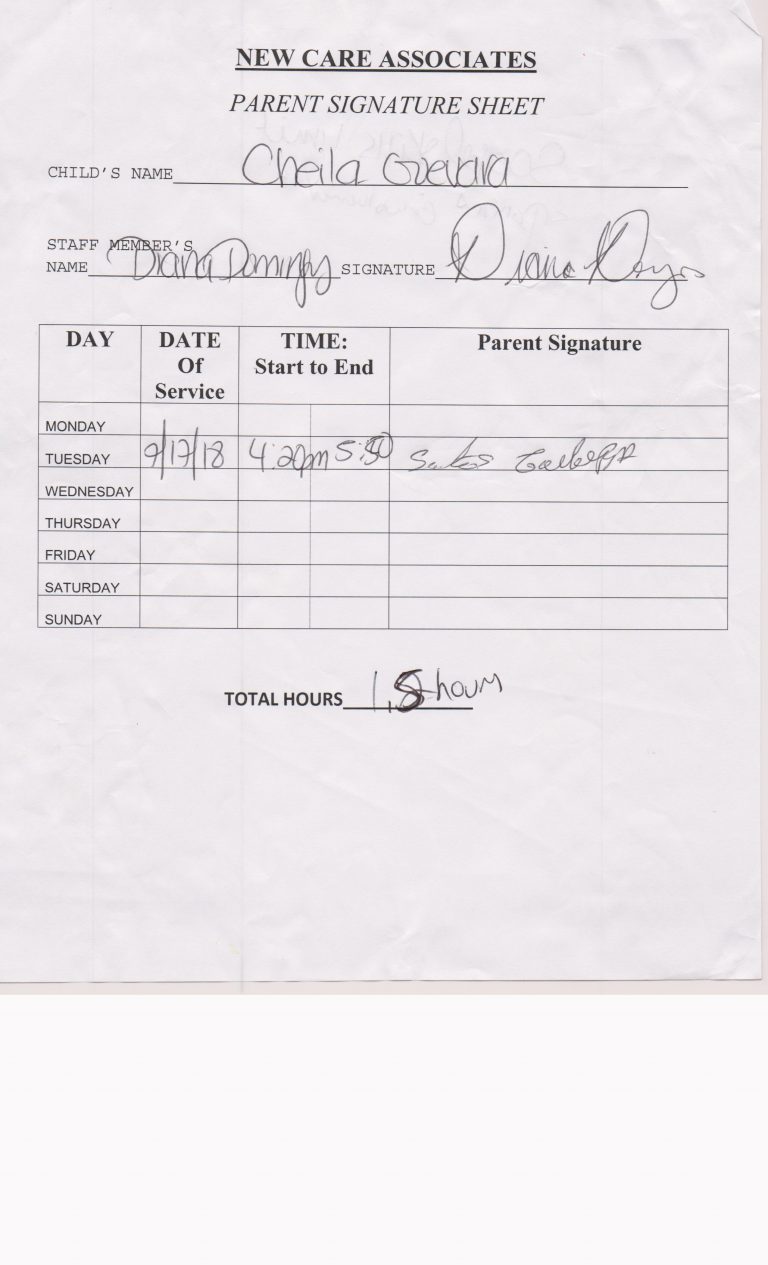 NEW CARE ASSOCIATES
PARENT SIGNATURE SHEET
CHILD'S NAME Cheila Guevara
STAFF MEMBER'S
NAME Diana SIGNATURE Diana
DAY DATE Of Service TIME: Start to End Parent Signature
MONDAY
TUESDAY 9/17/18 4:20pm 5:50
WEDNESDAY
THURSDAY
FRIDAY
SATURDAY
SUNDAY
TOTAL HOURS 1.5 hours